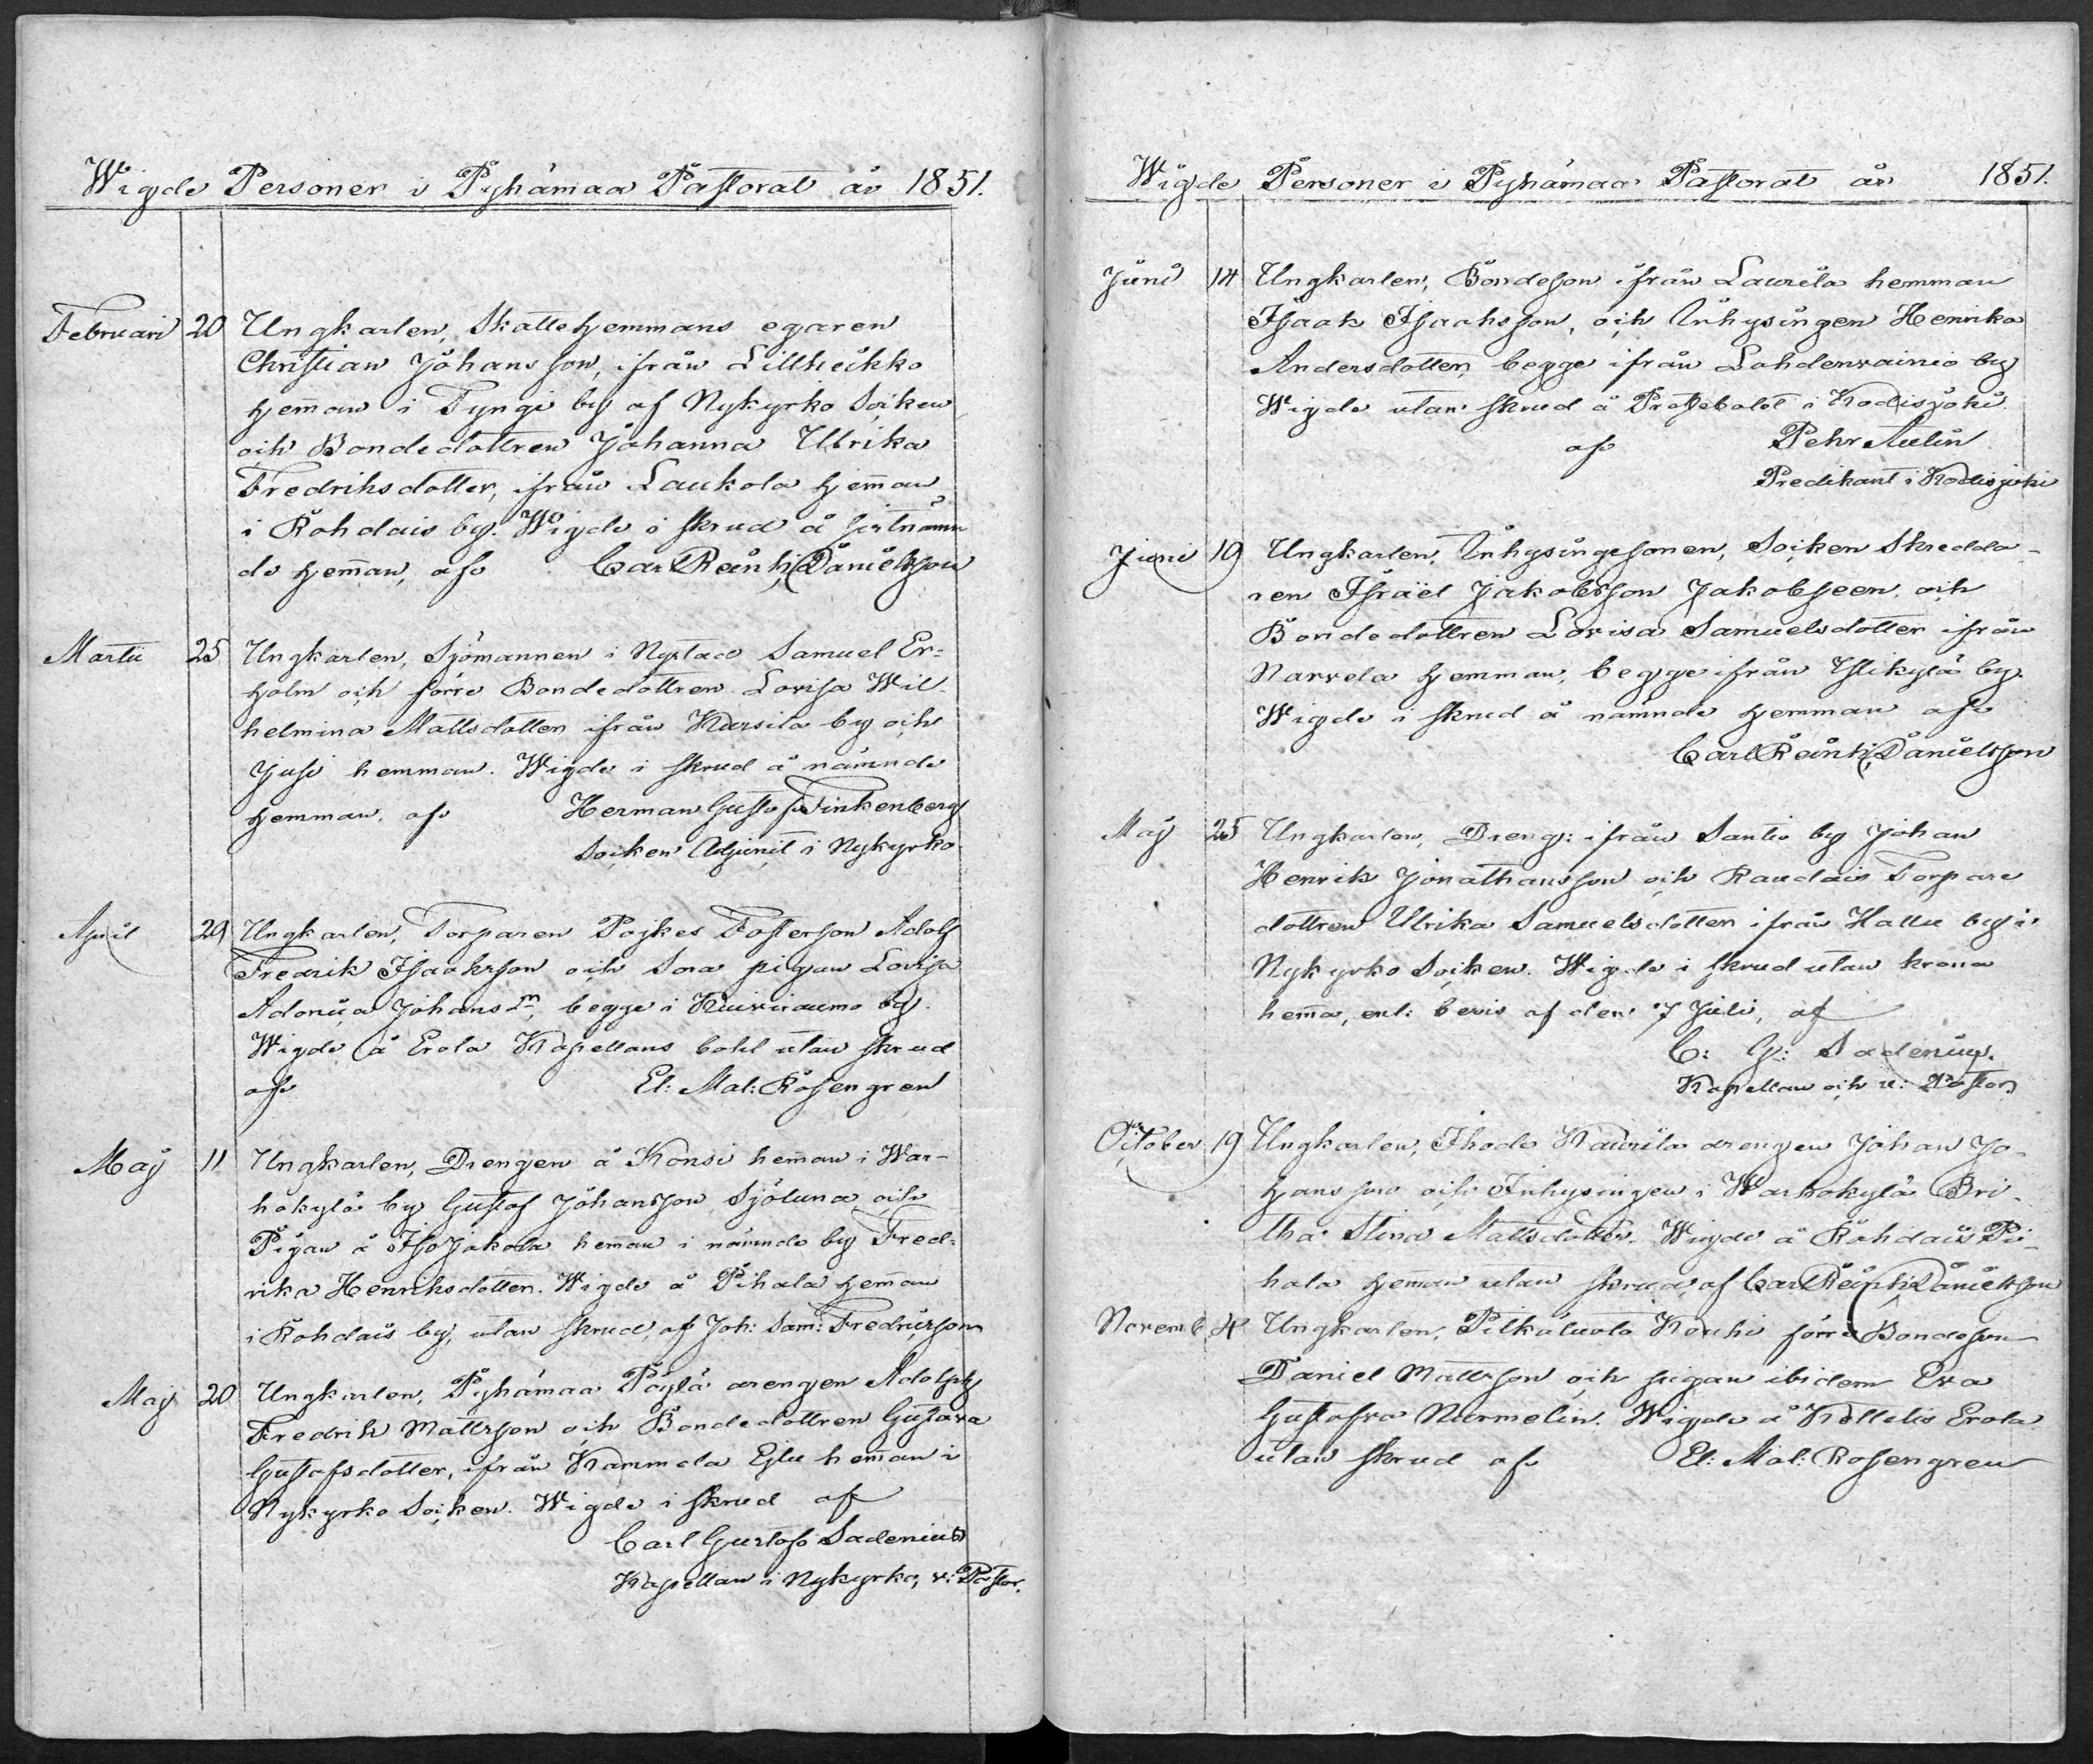 Wigde Personer i Pyhämaa Pastorat år 1851.
Februari 20 Ungkarlen, Skattehemmans egaren
Christian Johansson, ifrån Lillheikko
hem̄an i Tyngi by af Nykyrko Socken
och Bondedottren Johanna Ulrika
Fredriksdotter, ifrån Laukola hem̄an
i Rohdais by. Wigde i skrud å sistnämn
de hem̄an, af Carl Reinh. Danielsson
Martii 25 Ungkarlen, Sjömannen i Nystad Samuel Er=
holm och förre Bondedottren Lovisa Wil-
helmina Mattsdotter ifrån Kursila by och
Jusi hemman. Wigde i skrud å nämnde
hemman, af Herman Gustaf Finkenberg
Socken Adjunct i Nykyrko
April 29 Ungkarlen, Torparen Pojkes Fosterson Adolf
Fredrik Isaaksson och Sora pigan Lovisa
Adonica Johansdr, begge i Kuivirauma by.
Wigde å Erola Kapellans bohl utan skrud
af El: Mal: Rosengren
Maj 11 Ungkarlen, Drengen å Konsi hem̄an i War-
hokylä by Gustaf Johansson Sjölund och
Pigan å Isojakola hem̄an i nämnde by Fred=
rika Henriksdotter. Wigde å Pihala hem̄an
i Rohdais by, utan skrud, af Joh: Sam: Fredricsson
Maj 20 Ungkarlen, Pyhämaa Pöylä drengen Adolph
Fredrik Mattsson och Bondedottren Gustava
Gustafsdotter, ifrån Kammela Ejlu hem̄an i
Nykyrko Socken. Wigde i skrud af
Carl Gustaf Sadenius
Kapellan i Nykyrko, v: Pastor.
Wigde Personer i Pyhämaa Pastorat år 1851.
Juni 14 Ungkarlen, Bondeson ifrån Laurila hemman
Isaak Isaaksson, och Inhysingen Henrika
Andersdotter, begge ifrån Lahdenvainio by
Wigde utan skrud å Prestebolet i Hodisjoki
af Pehr Aulin
Predikant i Hodisjoki
Juni 19 Ungkarlen, Inhysingesonen, Socken Skredda-
ren Israël Jakobsson Jakobseen, och
Bondedottren Lovisa Samuelsdotter ifrån
Narvela hemman, begge ifrån Ylikylä by.
Wigde i skrud å nämnde hemman af
Carl Reinh. Danielsson
Maj 25 Ungkarlen, Dreng: ifrån Santio by Johan
Henrik Jonathansson och Raudais Torpare
dottren Ulrika Samuelsdotter ifrån Hallu by i
Nykyrko Socken. Wigde i skrud utan krona
hem̄a, enl: bevis af den 7 Juli, af
C: G: Sadenius.
Kapellan och v: Pastor
October 19 Ungkarlen, Ihode Kaurila drengen Johan Jo-
hansson och Inhysingen i Warhokylä Bri-
tha Stina Mattsdotter. Wigde å Rohdais Pi-
hala hem̄an utan skrud, af Carl Reinh. Danielsson
Novemb. 4 Ungkarlen, Pitkäluoto Kouhi förre Bondeson
Daniel Mattsson och pigan ibidem Eva
Gustafva Nurmelin. Wigde å Kettelis Erola
utan skrud af El: Mal: Rosengren